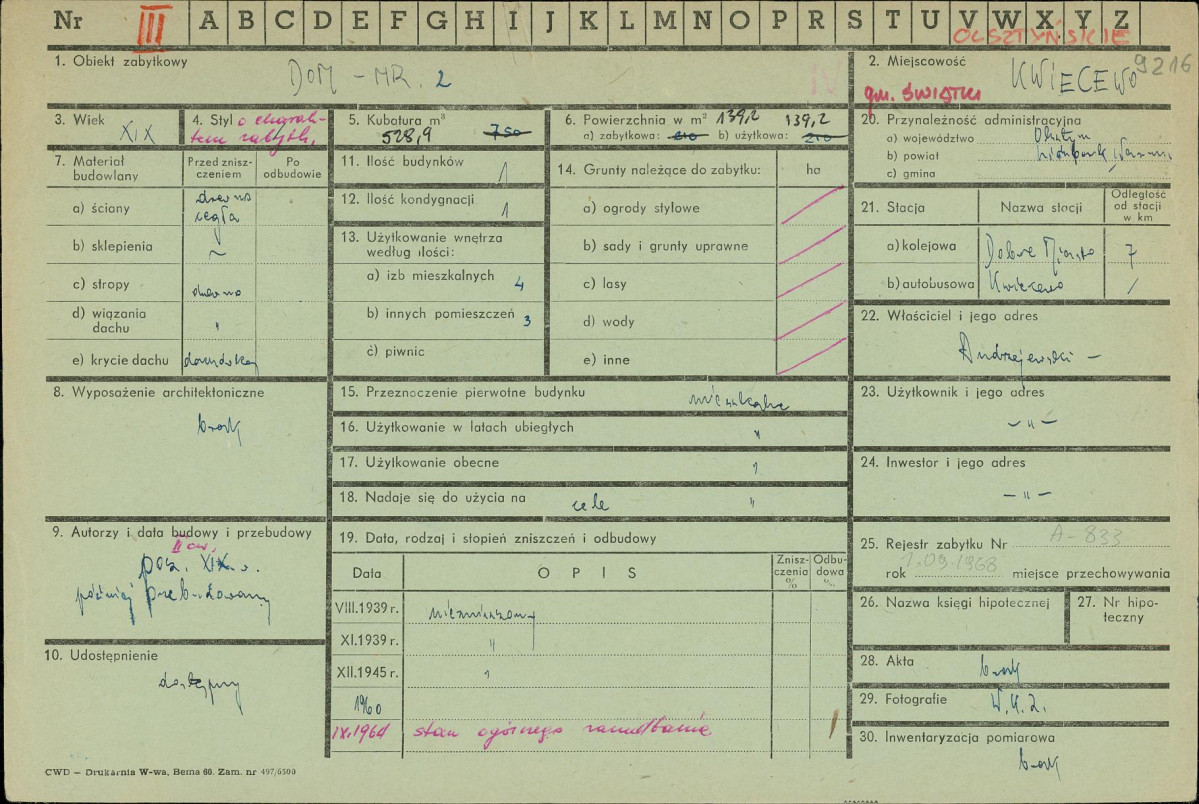 Nr III A B C D E F G H I J K L M N O P R S T U V W X Y Z
OLSZTYŃSKIE
1. Obiekt zabytkowy
DOM - NR. 2
2. Miejscowość
KWIECEWO 9216
gm. ŚWIĄTKI
3. Wiek
XIX
4. Styl o charak-
terem zabytk.
5. Kubatura m³
528,9 750
6. Powierzchnia w m² 139,2 139,2
a) zabytkowa: 210 b) użytkowa: 210
20. Przynależność administracyjna
a) województwo Olsztyn
b) powiat
c) gmina
7. Materiał budowlany
Przed znisz-
czeniem
Po
odbudowie
a) ściany drewno
cegła
b) sklepienia ~
c) stropy drewno
d) wiązania
dachu "
e) krycie dachu dachówka
11. Ilość budynków 1
12. Ilość kondygnacji 1
13. Użytkowanie wnętrza
według ilości:
a) izb mieszkalnych 4
b) innych pomieszczeń 3
c) piwnic
14. Grunty należące do zabytku: ha
a) ogrody stylowe
b) sady i grunty uprawne
c) lasy
d) wody
e) inne
21. Stacja
Nazwa stacji
Odległość
od stacji
w km
a) kolejowa Dobre Miasto 7
b) autobusowa Kwiecewo /
22. Właściciel i jego adres
Andrzejewski -
8. Wyposażenie architektoniczne
brak
15. Przeznoczenie pierwotne budynku mieszkalne
16. Użytkowanie w latach ubiegłych "
17. Użytkowanie obecne "
18. Nadaje się do użycia na cele "
23. Użytkownik i jego adres
- " -
24. Inwestor i jego adres
- " -
9. Autorzy i data budowy i przebudowy
II ćw.
pocz. XIX w.
później przebudowany
19. Data, rodzaj i stopień zniszczeń i odbudowy
Data
OPIS
Znisz-
czenia
%
Odbu-
dowa
%
VIII.1939 r. niezniszczony
XI.1939 r. "
XII.1945 r. "
1960
IX.1964 stan ogólnego zaniedbania
25. Rejestr zabytku Nr A-833
rok 1.09.1968 miejsce przechowywania
26. Nazwa księgi hipotecznej
27. Nr hipo-
teczny
10. Udostępnienie
dostępny
28. Akta brak
29. Fotografie
30. Inwentaryzacja pomiarowa
brak
CWD — Drukarnia W-wa, Bema 60. Zam. nr 497/6500